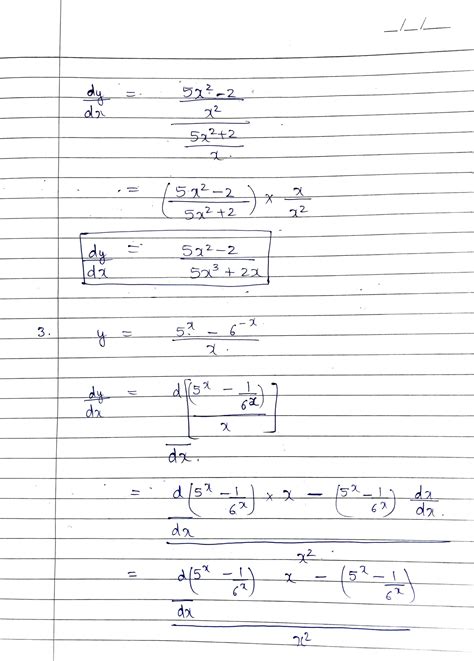 __/__/__
dy/dx = ((5x² - 2)/x²)/((5x² + 2)/x)
= ((5x² - 2)/(5x² + 2)) × x/x²
dy/dx = (5x² - 2)/(5x³ + 2x)
3. y = (5^x - 6^-x)/x
dy/dx = d/dx [(5^x - 1/6^x)/x]
= (d/dx (5^x - 1/6^x) × x - (5^x - 1/6^x) dx/dx)/x²
= (d/dx (5^x - 1/6^x) x - (5^x - 1/6^x))/x²